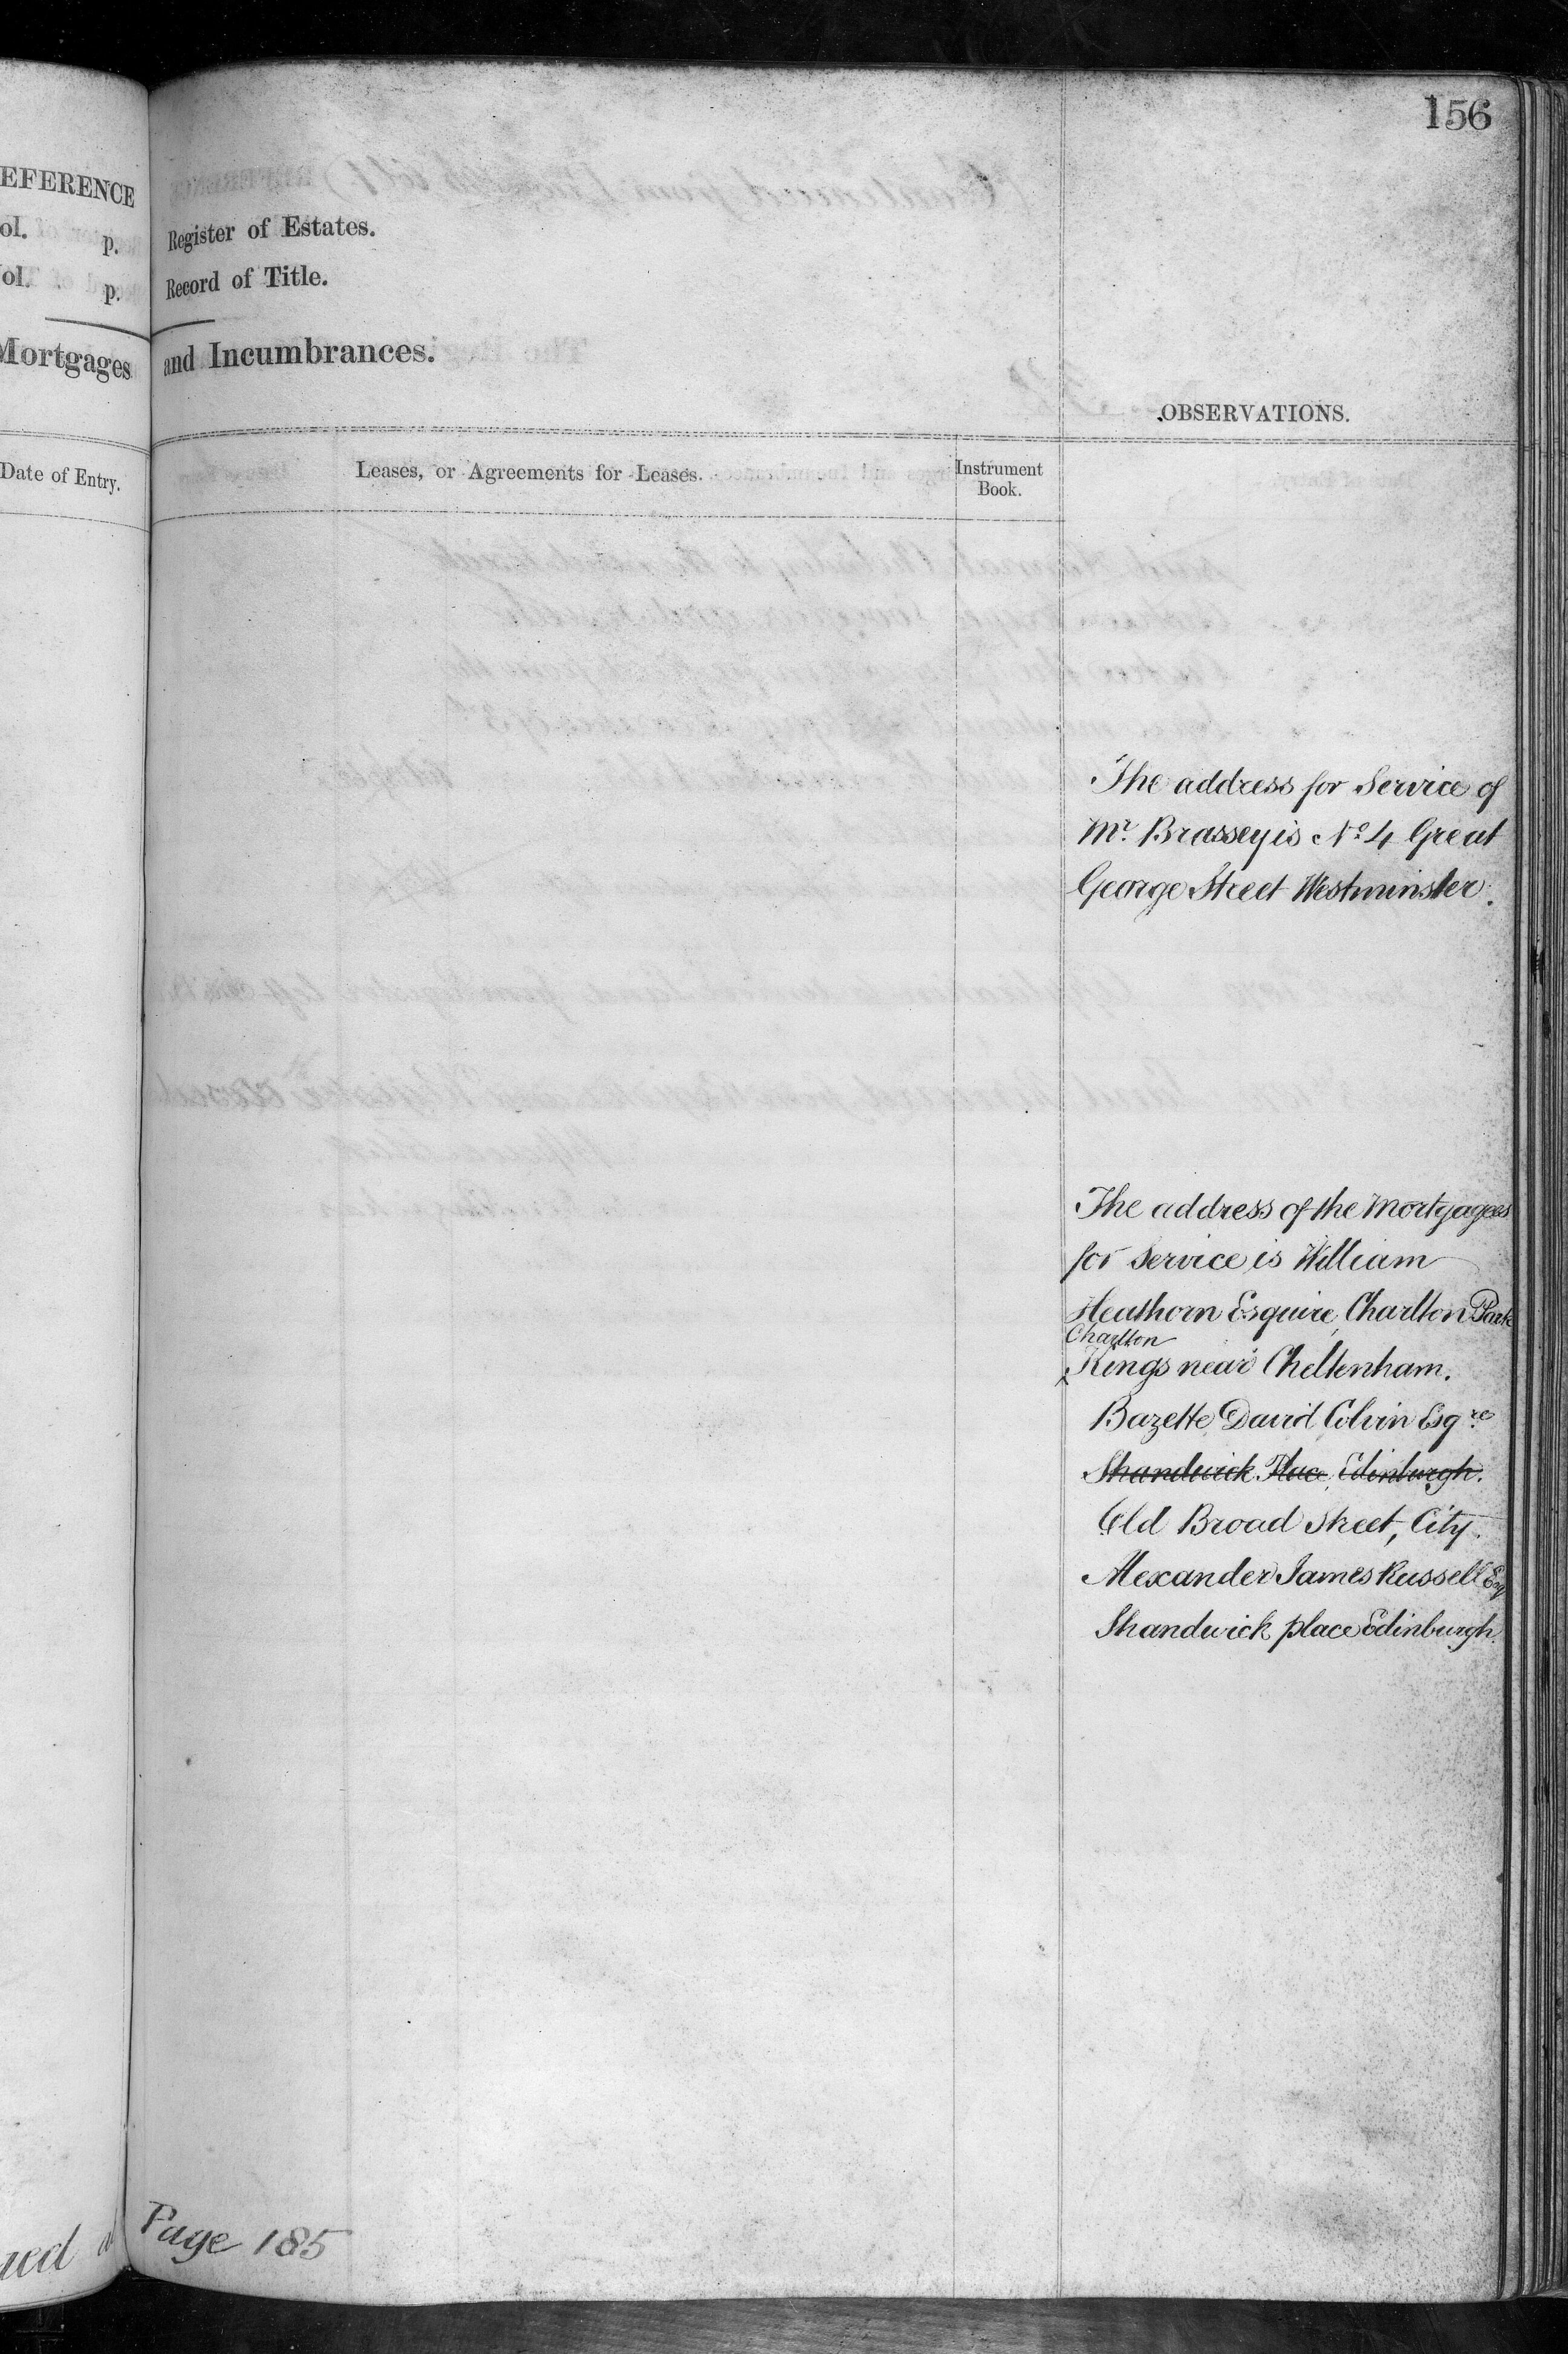 156
EFERENCE
ol. p.
Vol. p.
Mortgages
Date of Entry.
Register of Estates.
Record of Title.
and Incumbrances.
OBSERVATIONS.
Leases, or Agreements for Leases.
Instrument
Book.
The address for Service of
Mr. Brassey is No. 4 Great
George Street Westminster.
The address of the Mortgagees
for service is William
Heathorn Esquire, Charlton Park
Charlton
Kings near Cheltenham.
Bazette David Colvin Esqre
Shandwick Place, Edinburgh.
Old Broad Street, City.
Alexander James Russell Esq
Shandwick place Edinburgh.
Page 185